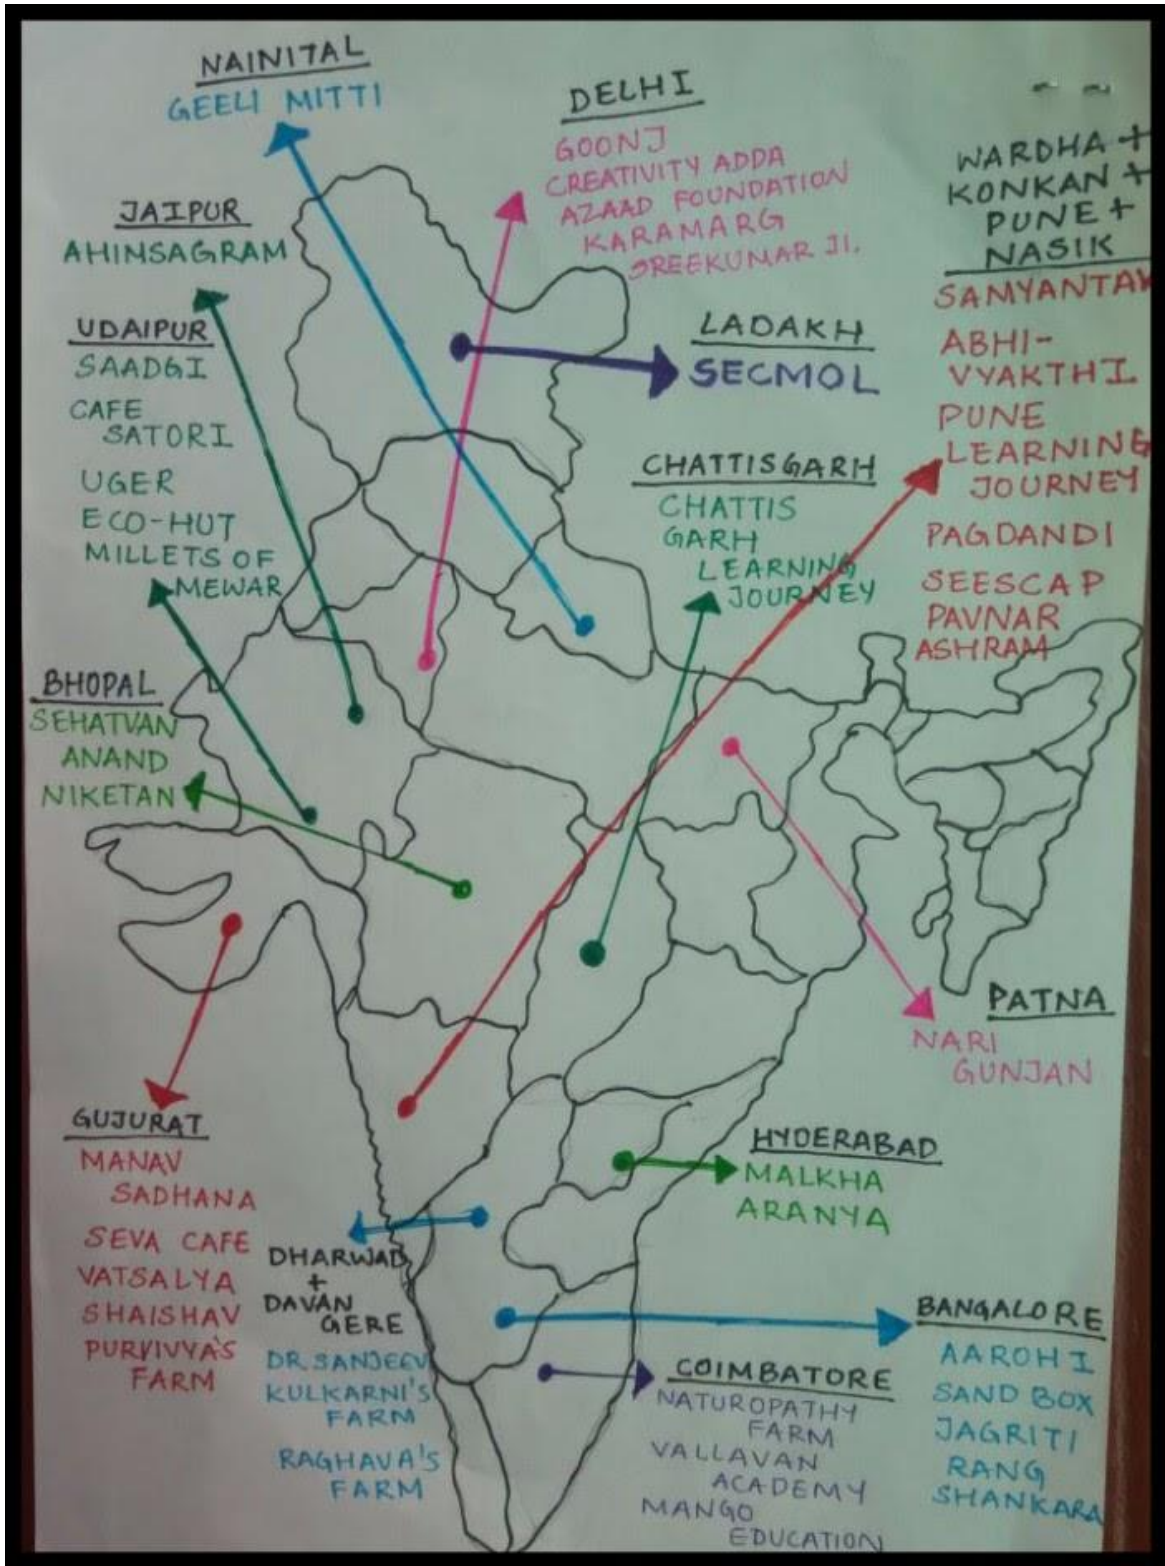 NAINITAL
GEELI MITTI
DELHI
GOONJ
CREATIVITY ADDA
AZAAD FOUNDATION
KARAMARG
SREEKUMAR JI.
WARDHA +
KONKAN +
PUNE +
NASIK
SAMYANTAK
ABHI-
VYAKTHI
PUNE
LEARNING
JOURNEY
PAGDANDI
SEESCAP
PAVNAR
ASHRAM
JAIPUR
AHIMSAGRAM
UDAIPUR
SAADGI
CAFE
SATORI
UGER
ECO-HUT
MILLETS OF
MEWAR
LADAKH
SECMOL
CHATTISGARH
CHATTIS
GARH
LEARNING
JOURNEY
BHOPAL
SEHATVAN
ANAND
NIKETAN
PATNA
NARI
GUNJAN
GUJURAT
MANAV
SADHANA
SEVA CAFE
VATSALYA
SHAISHAV
PURVIVYA'S
FARM
DHARWAD
+
DAVAN
GERE
DR.SANJEEV
KULKARNI'S
FARM
RAGHAVA'S
FARM
HYDERABAD
MALKHA
ARANYA
COIMBATORE
NATUROPATHY
FARM
VALLAVAN
ACADEMY
MANGO
EDUCATION
BANGALORE
AAROHI
SAND BOX
JAGRITI
RANG
SHANKARA